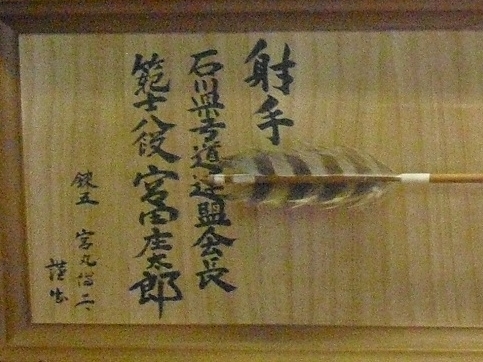 射手
石川県弓道連盟会長
範士八段 宮田庄太郎
錬五 宮丸 二
謹書